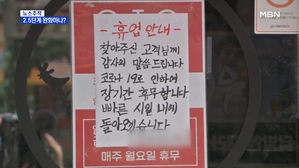 뉴스추적
2.5단계 완화이나?
MBN
- 휴업안내 -
찾아주신 고객님께
감사의 말씀 드립니다
코로나 19로 인하여
장기간 휴무합니다
빠른 시일 내에
돌아오겠습니다
매주 월요일 휴무